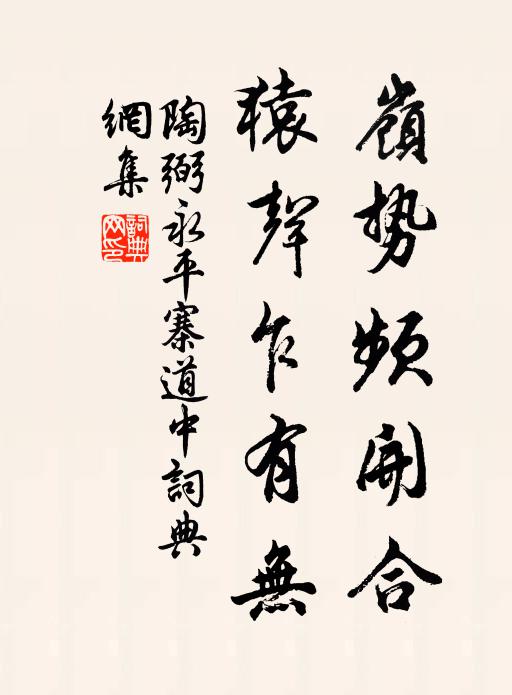 嶺勢頻開合
猿聲乍有無
陶弼永平寨道中詞典
網集
詞典
網印